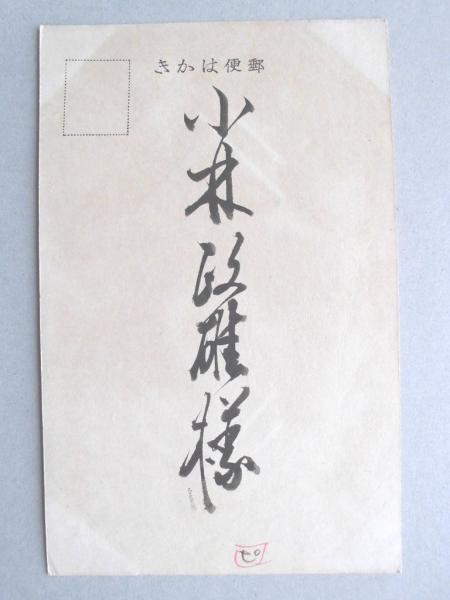 きかは便郵
小林政雄様
ピ